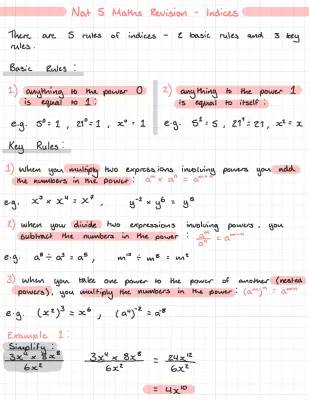 Nat 5 Maths Revision - Indices
There are 5 rules of indices - 2 basic rules and 3 key
rules.
Basic Rules :
1) anything to the power 0
is equal to 1 :
e.g. 5⁰ = 1 , 21⁰ = 1 , x⁰ = 1
2) anything to the power 1
is equal to itself :
e.g. 5¹ = 5 , 21¹ = 21 , x¹ = x
Key Rules :
1) when you multiply two expressions involving powers you add
the numbers in the power : aᵐ × aⁿ = aᵐ⁺ⁿ
e.g. x³ × x⁴ = x⁷ , y⁻² × y⁸ = y⁶
2) when you divide two expressions involving powers, you
subtract the numbers in the power : aᵐ/aⁿ = aᵐ⁻ⁿ
e.g. a⁸ ÷ a³ = a⁵ , m¹⁰ ÷ m⁸ = m²
3) when you take one power to the power of another (nested
powers), you multiply the numbers in the power : (aᵐ)ⁿ = aᵐⁿ
e.g. (x²)³ = x⁶ , (a⁴)⁻² = a⁻⁸
Example 1 :
Simplify :
3x⁴ × 8x⁸ / 6x²
3x⁴ × 8x⁸ / 6x² = 24x¹² / 6x²
= 4x¹⁰